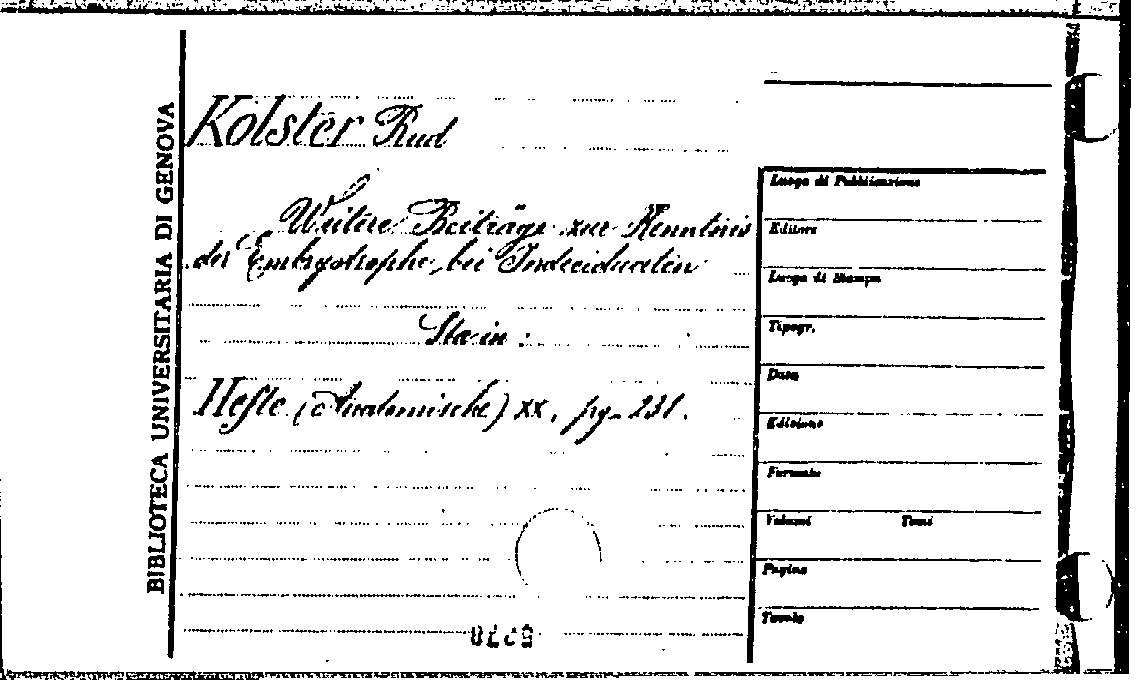 BIBLIOTECA UNIVERSITARIA DI GENOVA
Kolster Rud
Weitere Beiträge zur Kenntnis
der Embryotrophe bei Indeciduaten
Sta in :
Hefte (Anatomische) XX, pg. 231.
Luogo di Pubblicazione
Editore
Luogo di Stampa
Tipogr.
Data
Edizione
Formato
Volumi Tomi
Pagine
Tavole